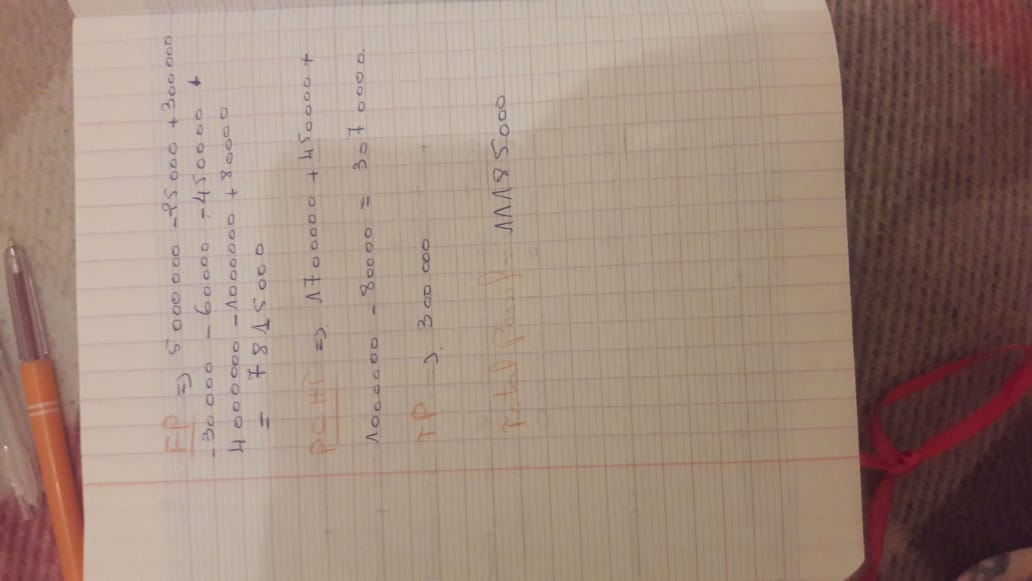 FP => 5000000 -25000 +300000
-30000 - 60000 -450000 +
4000000 -1000000 +80000
= 7815000
PCHT => 1700000 + 450000 +
1000000 - 80000 = 3070000.
TP -> 300 000
Total Passif - 11185000